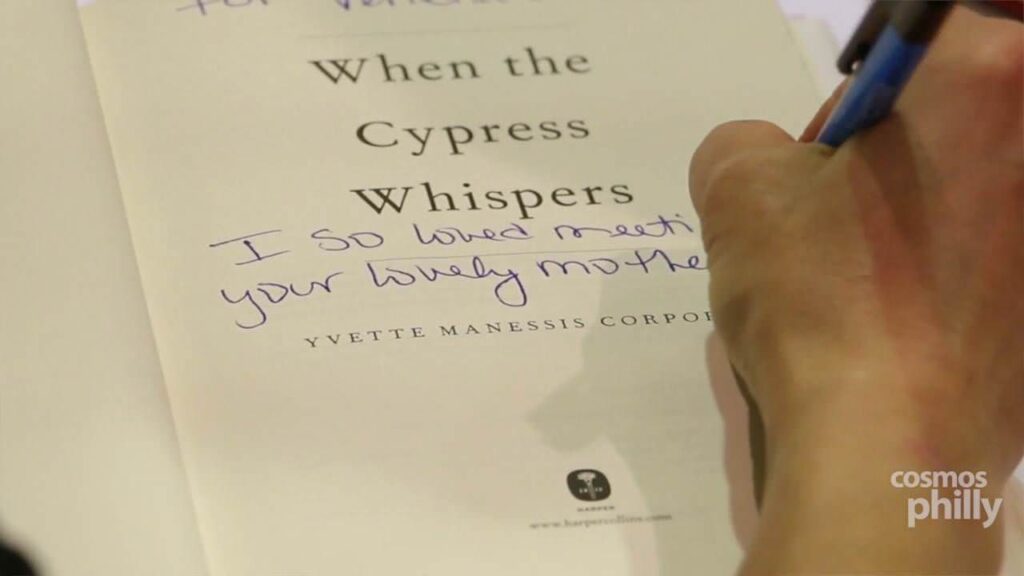 For
When the
Cypress
Whispers
I so loved meeti
your lovely mothe
YVETTE MANESSIS CORPOR
HARPER
www.harpercollins.com
cosmos
philly